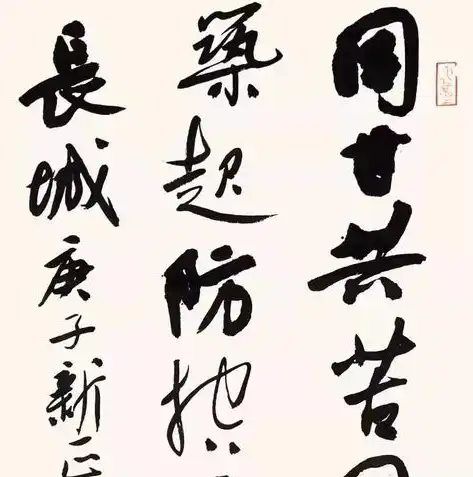 同甘共苦
築起防控
長城庚子新正